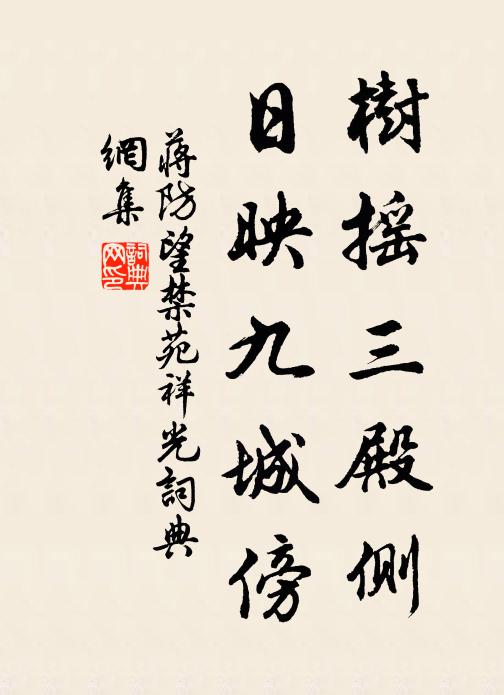 樹搖三殿側
日映九城傍
蔣防望禁苑祥光詞典
網集
詞典
网印